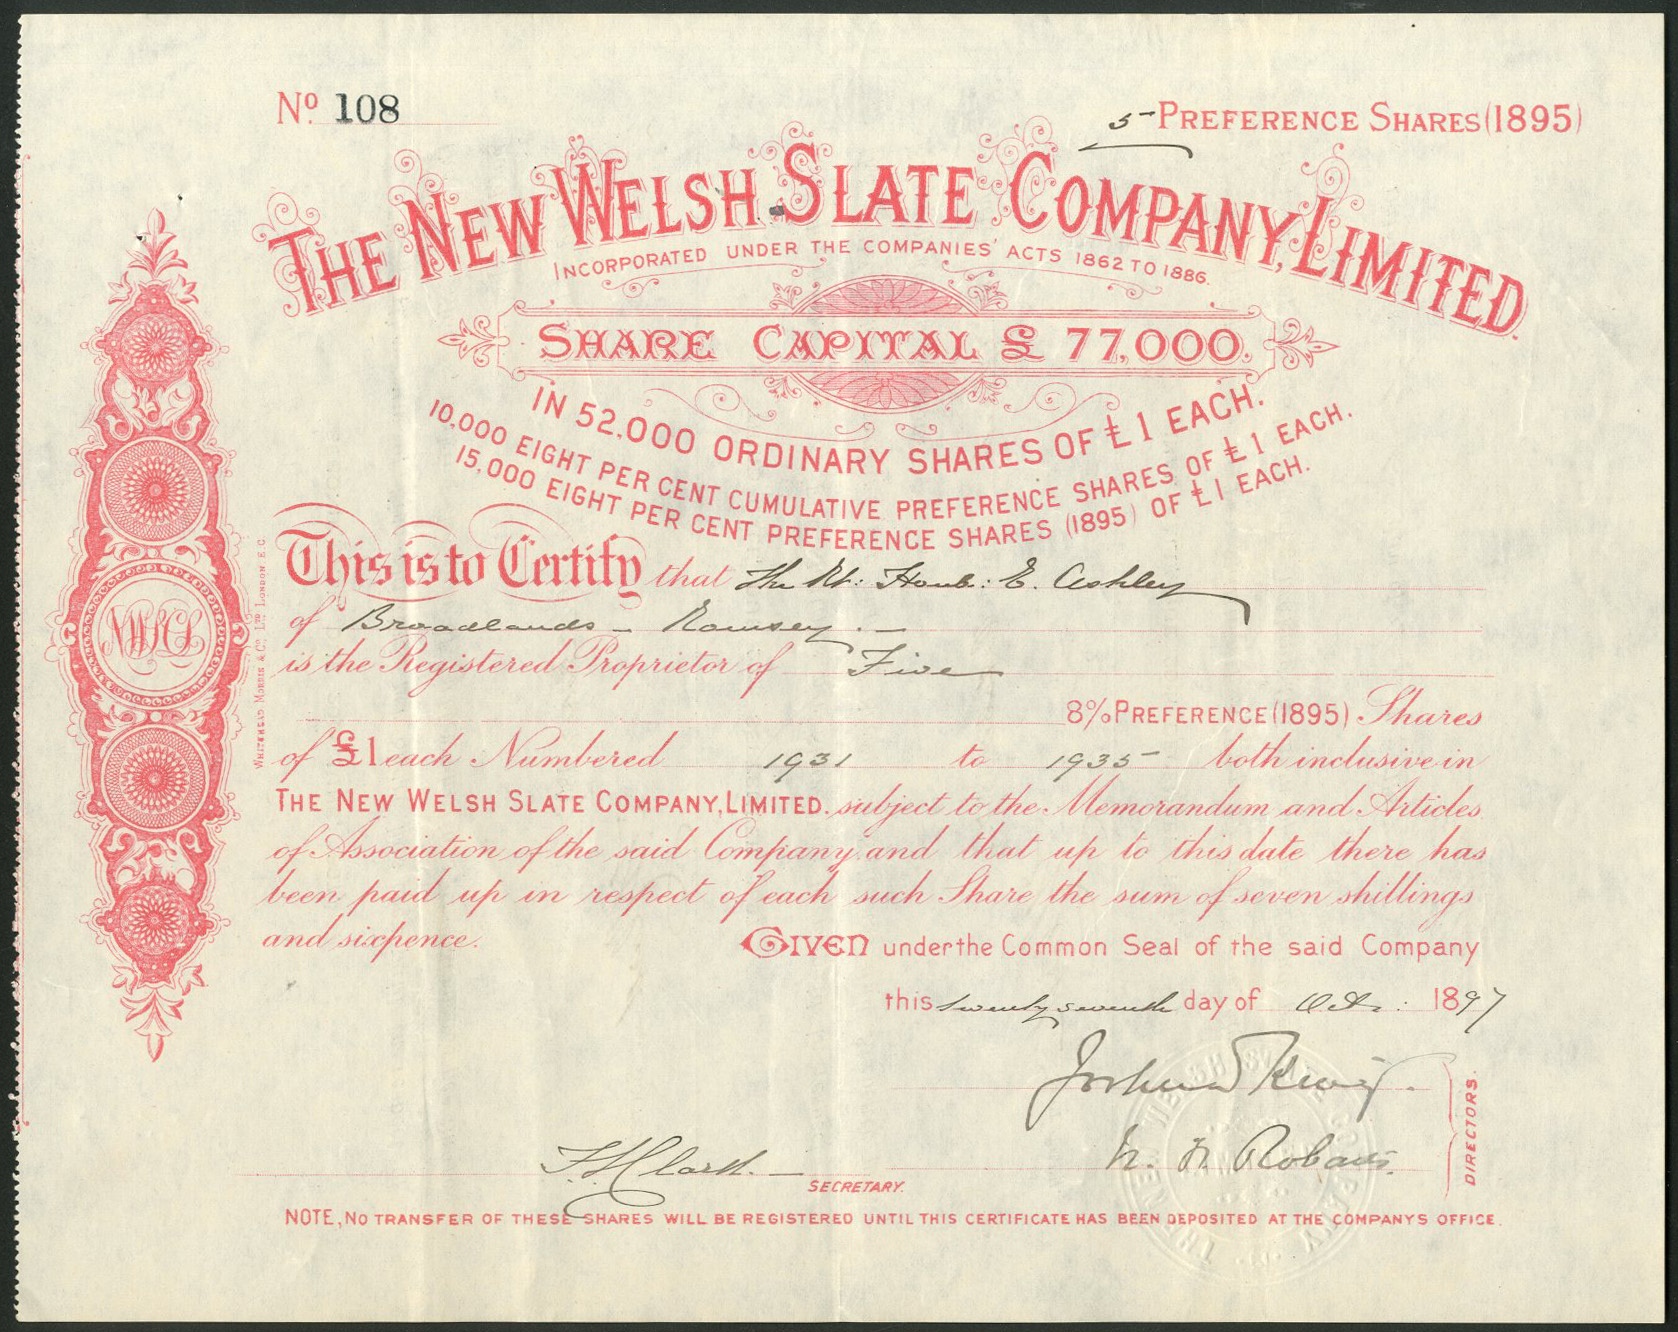 No. 108
5 PREFERENCE SHARES (1895)
THE NEW WELSH SLATE COMPANY, LIMITED.
INCORPORATED UNDER THE COMPANIES' ACTS 1862 TO 1886.
SHARE CAPITAL £77,000.
IN 52,000 ORDINARY SHARES OF £1 EACH.
10,000 EIGHT PER CENT CUMULATIVE PREFERENCE SHARES OF £1 EACH.
15,000 EIGHT PER CENT PREFERENCE SHARES (1895) OF £1 EACH.
This is to Certify that The Rt: Honb: E. Ashley
of Broadlands - Romsey. -
is the Registered Proprietor of Five
8% PREFERENCE (1895) Shares
of £1 each Numbered 1931 to 1935 both inclusive in
THE NEW WELSH SLATE COMPANY, LIMITED. subject to the Memorandum and Articles
of Association of the said Company, and that up to this date there has
been paid up in respect of each such Share the sum of seven shillings
and sixpence.
GIVEN under the Common Seal of the said Company
this twenty seventh day of Oct: 1897
DIRECTORS.
F. S. Clark.
SECRETARY.
NOTE, NO TRANSFER OF THESE SHARES WILL BE REGISTERED UNTIL THIS CERTIFICATE HAS BEEN DEPOSITED AT THE COMPANYS OFFICE.
NWSCL
WHITEHEAD MORRIS & CO. LTD. LONDON E.C.
THE NEW WELSH SLATE COMPANY